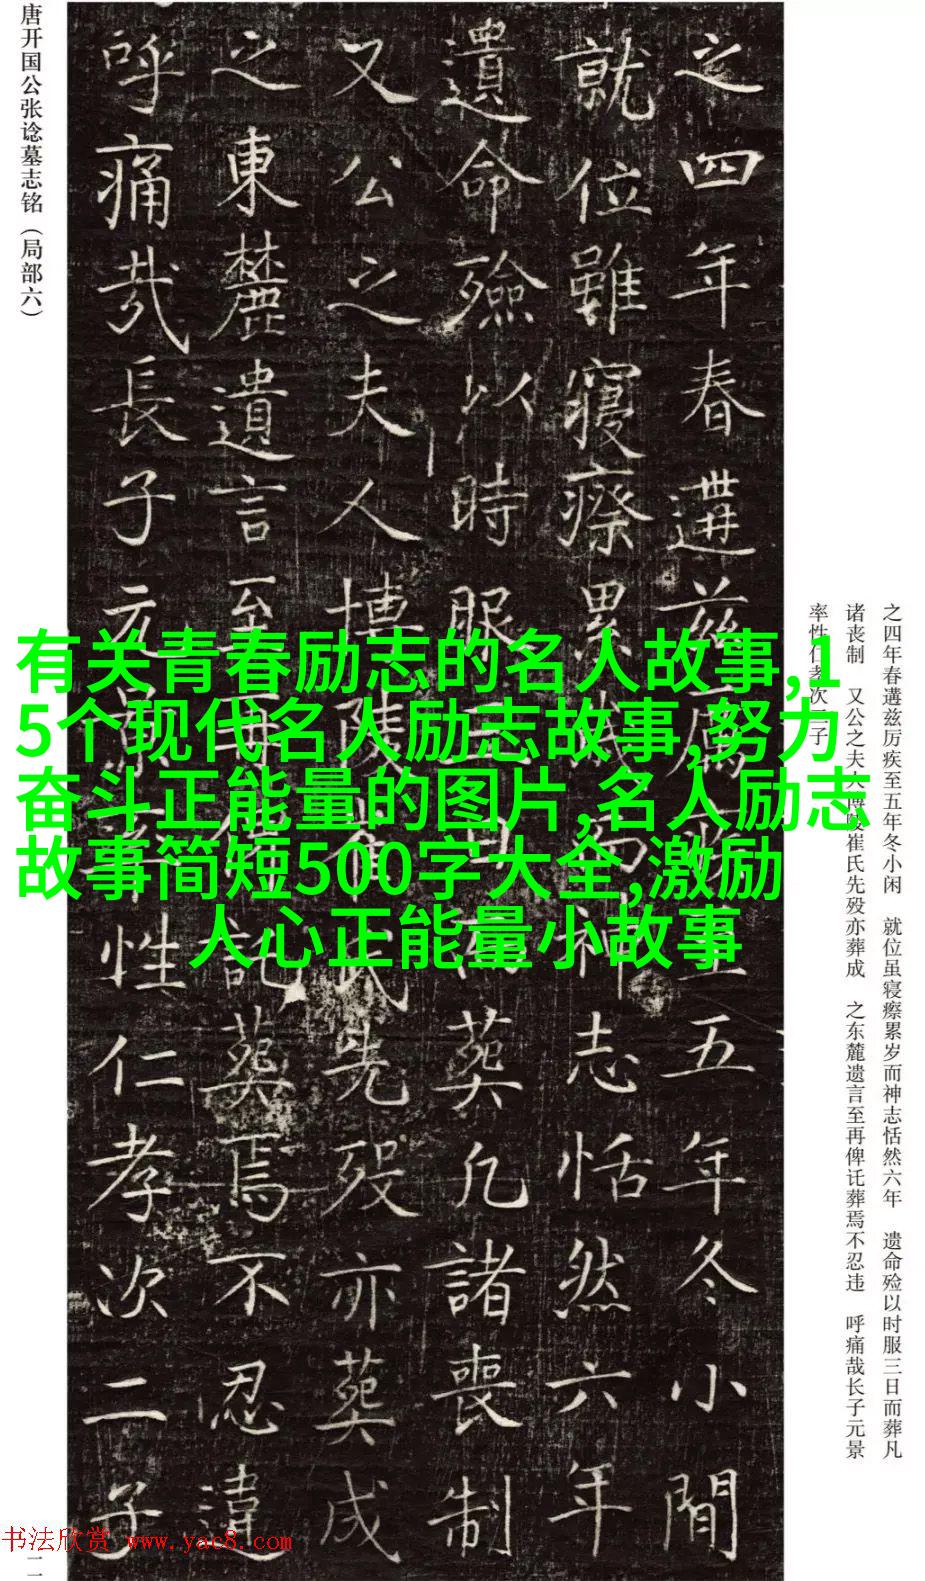 唐开国公张谂墓志铭（局部六）
之四年春遘兹厉疾至五年冬小閒
就位雖寝瘵累歲而神志恬然六年
遺命殮以時服三日而葬凡諸喪制
又公之夫人博陵崔氏先殁亦葬成
之東麓遺言至再俾託葬焉不忍違
呼痛哉長子元景率性仁孝次二子
有关青春励志的名人故事,1
5个现代名人励志故事,努力
奋斗正能量的图片,名人励志
故事简短500字大全,激励
人心正能量小故事
之四年春遘兹厉疾至五年冬小闲　就位虽寝瘵累岁而神志恬然六年　遗命殓以时服三日而葬凡
诸丧制　又公之夫人博陵崔氏先殁亦葬成　之东麓遗言至再俾讬葬焉不忍违　呼痛哉长子元景
率性仁孝次二子
书法欣赏 www.yac8.com